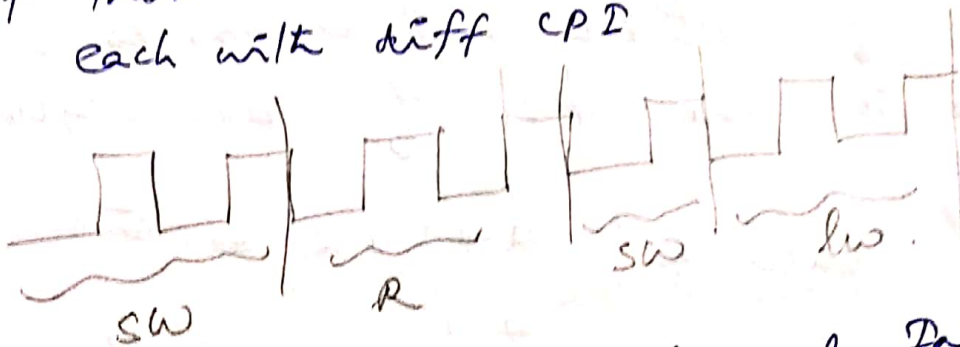 each with diff CPI
SW R SW lw.